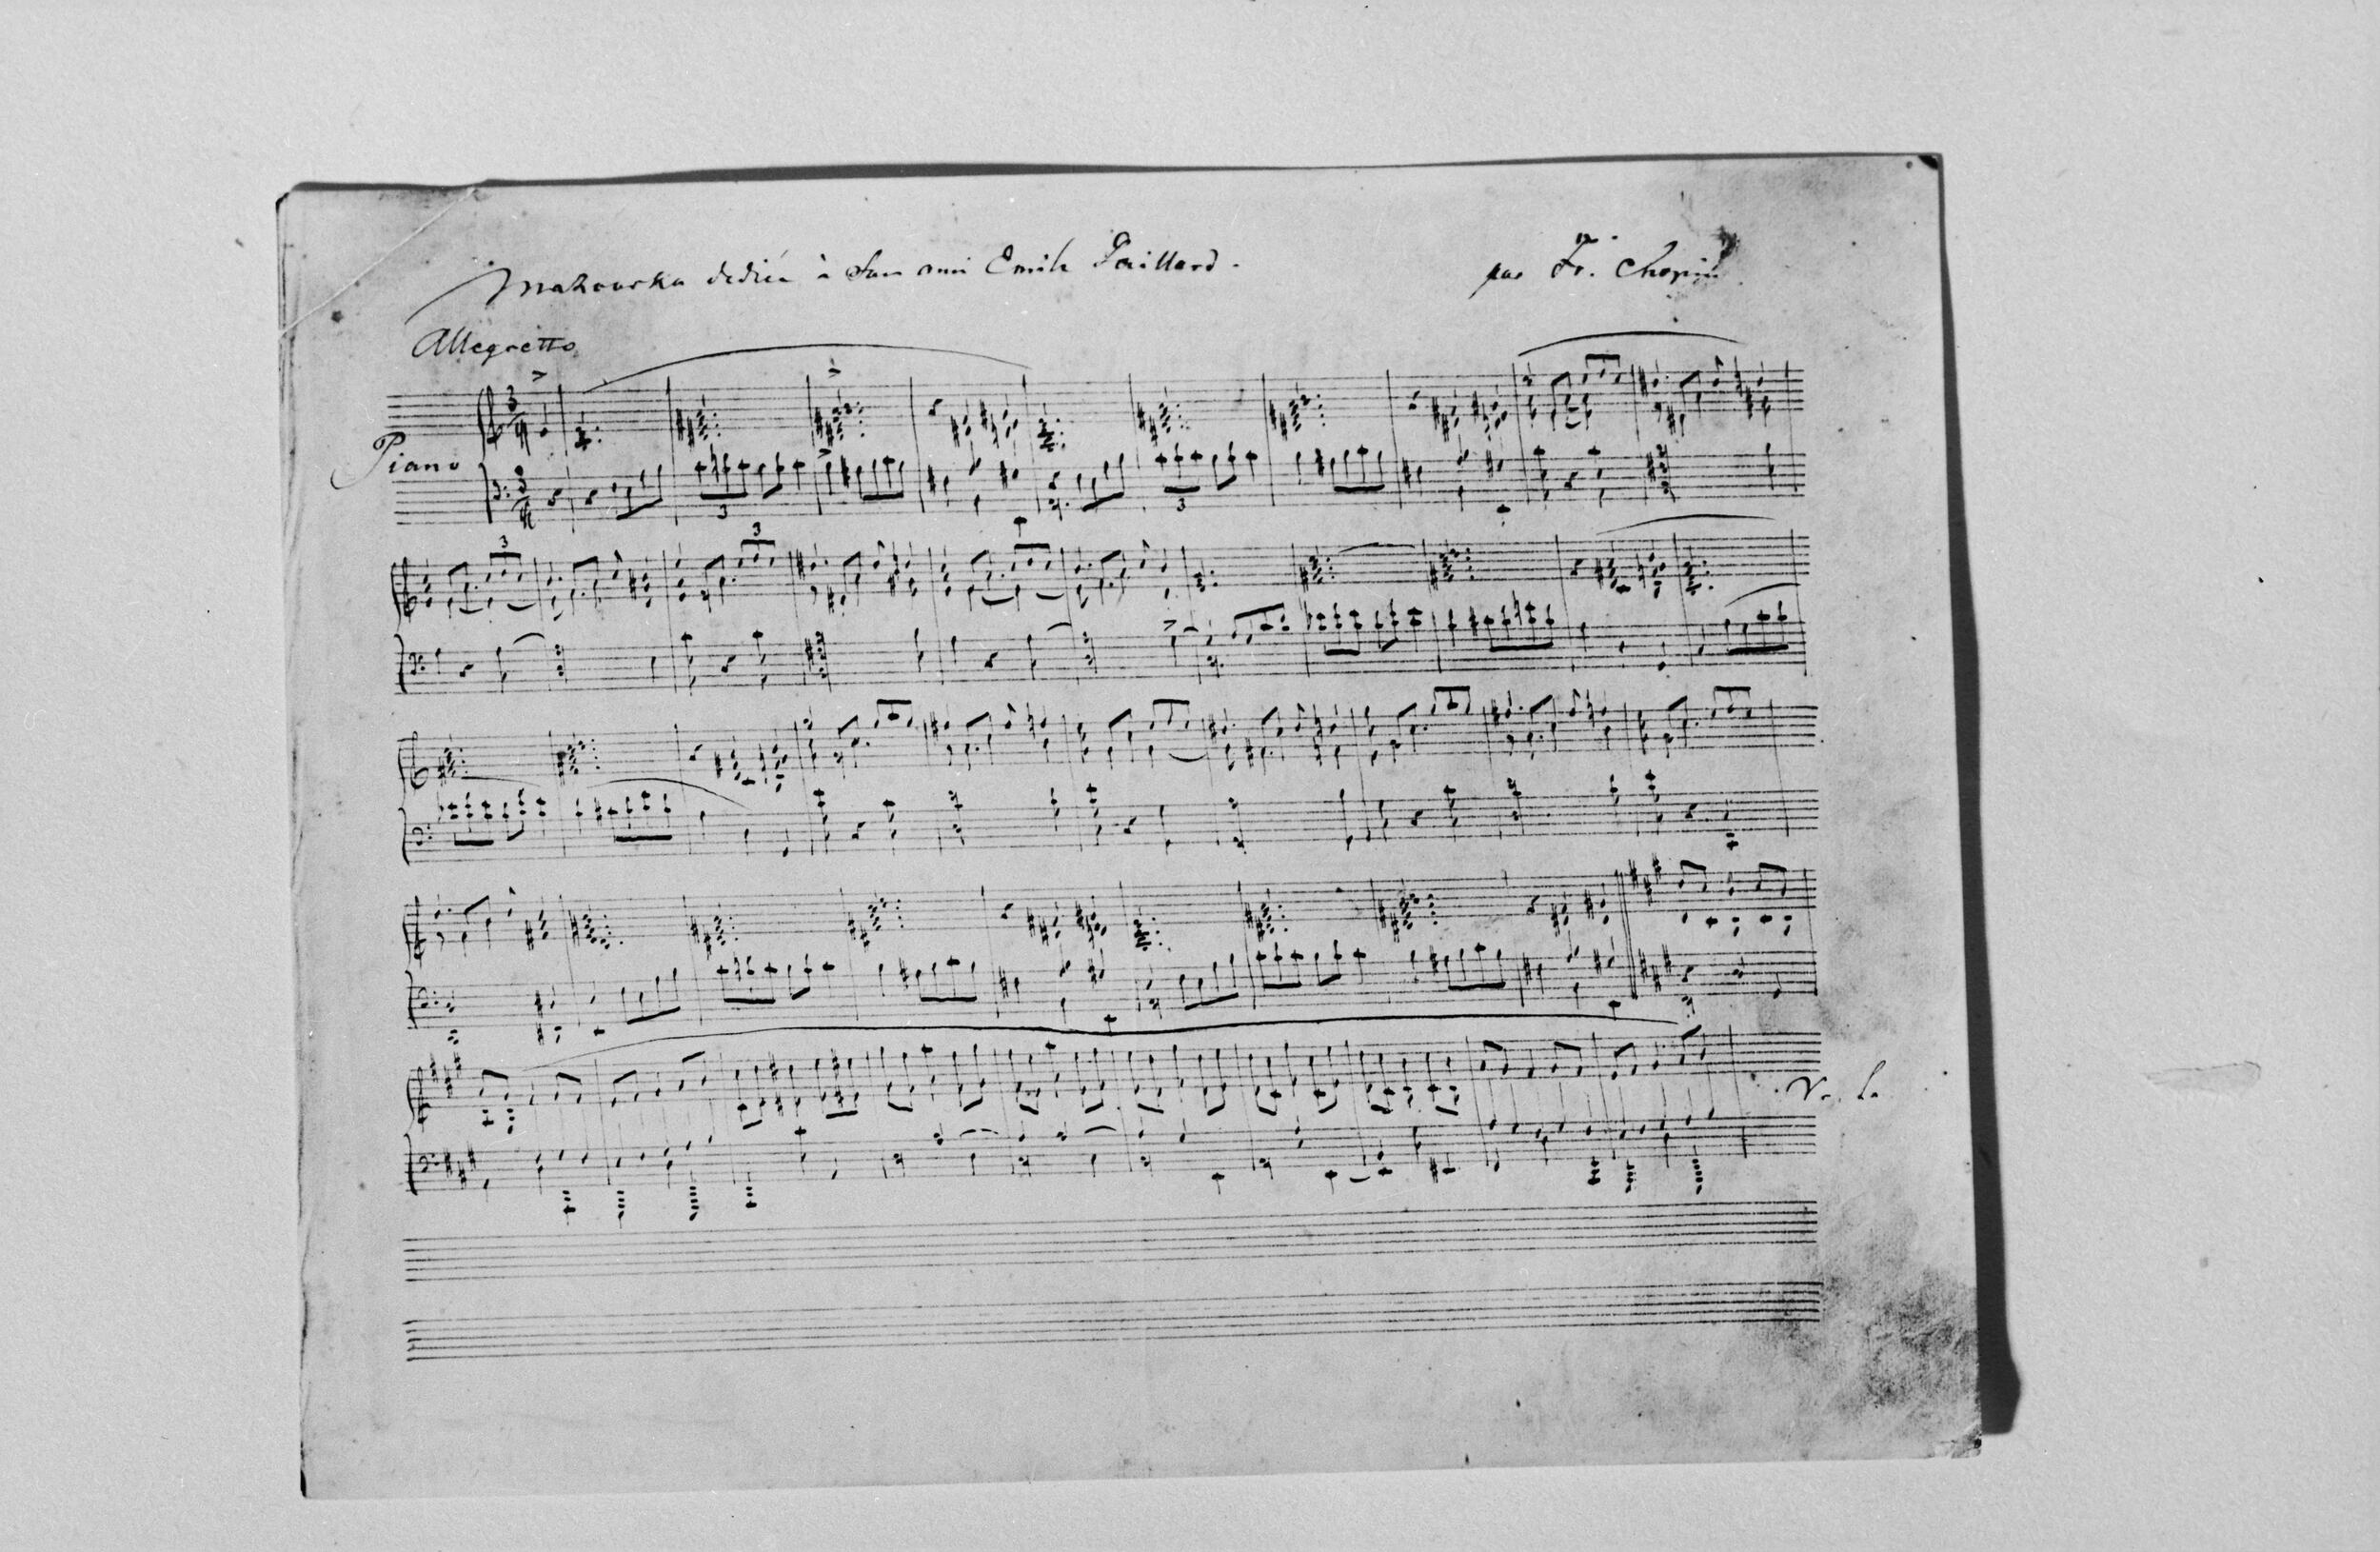 Mazourka dediée à son ami Emile Gaillard. par Fr. Chopin
Allegretto
Piano
3
4
3
4
3
3
3
3